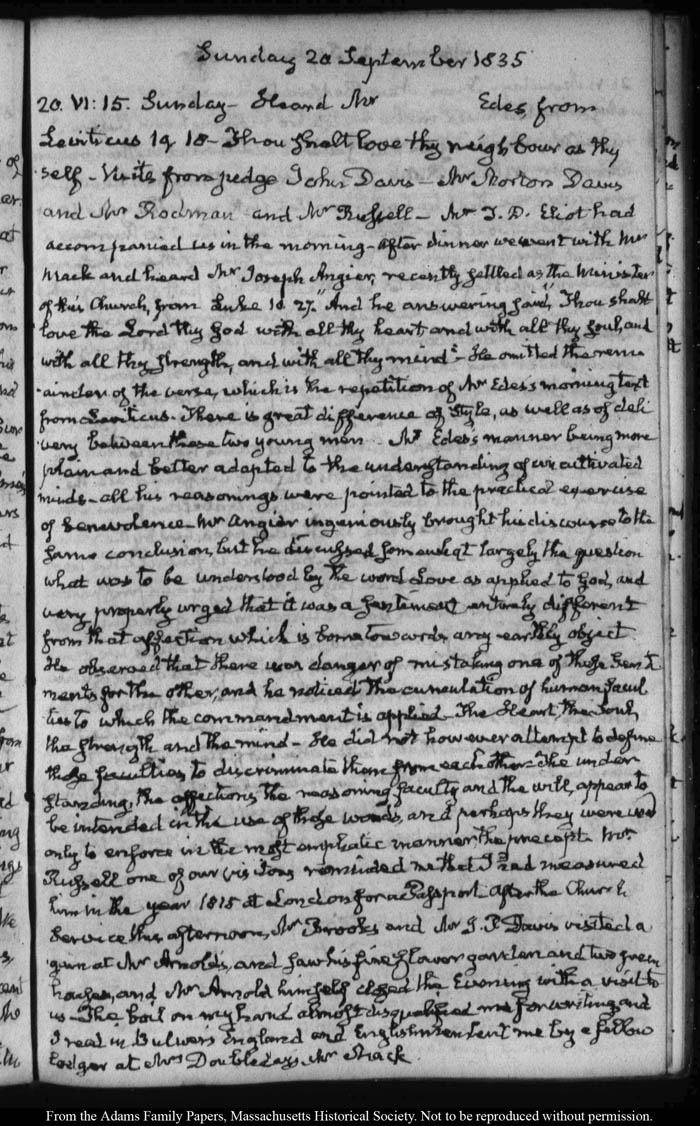 Sunday 20 September 1835
20. VI: 15. Sunday - Heard Mr Edes, from
Leviticus 19 18 - Thou shalt love thy neighbour as thy
self - Visits from judge John Davis - Mr Morton Davis
and Mr Rodman and Mr Russell - Mr T. D. Eliot had
accompanied us in the morning - After dinner we went with Mr
Mack and heard Mr Joseph Angier, recently settled as the Minister
of this Church, from Luke 10 27. "And he answering said, Thou shalt
love the Lord thy God with all thy heart and with all thy soul, and
with all thy strength, and with all thy mind" - He omitted the rem
ainder of the verse, which is the repetition of Mr Edes's morning text
from Leviticus. There is great difference of style, as well as of deli
very between these two young men. Mr Edes's manner being more
plain and better adapted to the understanding of uncultivated
minds - all his reasonings were pointed to the practical exercise
of benevolence - Mr Angier ingeniously brought his discourse to the
same conclusion, but he discussed somewhat largely the question
what was to be understood by the word Love as applied to God, and
very properly urged that it was a sentiment entirely different
from that affection which is borne towards any earthly object
He observed that there was danger of mistaking one of these senti
ments for the other, and he noticed the cumulation of human facul
ties to which the commandment is applied - The Heart, the Soul,
the strength and the mind - He did not however attempt to define
these faculties, to discriminate them from each other - The under
standing, the affections, the reasoning faculty and the will, appear to
be intended in the use of those words, and perhaps they were used
only to enforce in the most emphatic manner the precept. Mr
Russell one of our visitors reminded me that I had measured
him in the year 1815 at London for a Passport. After the Church
Service this afternoon, Mr Brooks and Mr J. P. Davis visited a
gain at Mr Arnold's, and saw his fine flower garden and two green
houses, and Mr Arnold himself closed the Evening with a visit to
us - The boil on my hand almost disqualified me for writing, and
I read in Bulwer's England and English lent me by a fellow
lodger at Mrs Doubleday's Mr Mack.
From the Adams Family Papers, Massachusetts Historical Society. Not to be reproduced without permission.